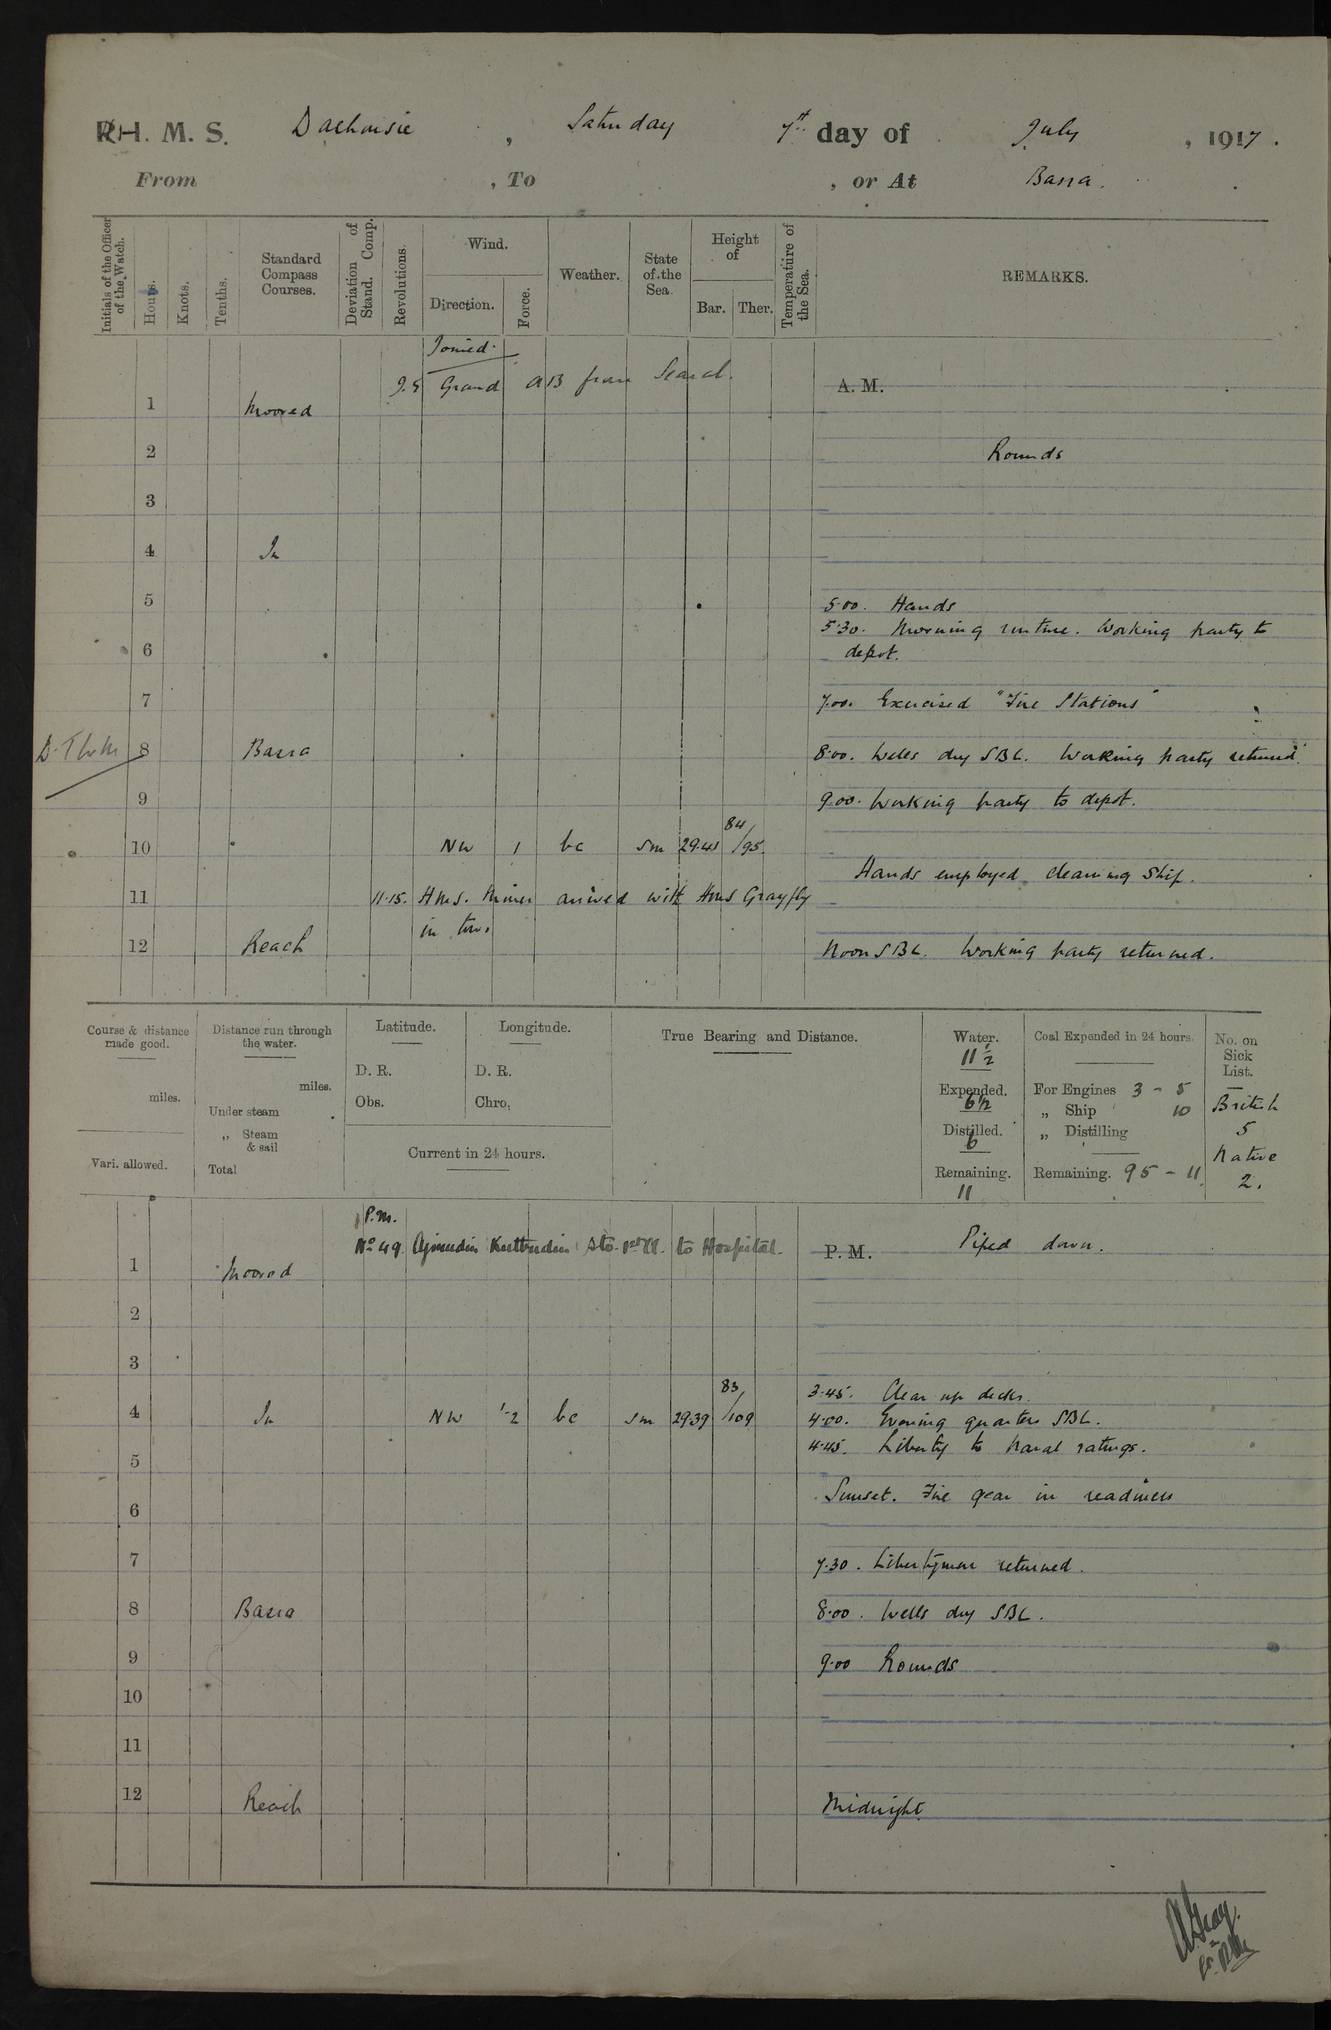 R.H. M. S. Dalhousie, Saturday 7th day of July, 1917.
From , To , or At Basra.
Initials of the Officer of the Watch.
Hours.
Knots.
Tenths.
Standard Compass Courses.
Deviation of Stand. Comp.
Revolutions.
Wind.
Direction.
Force.
Weather.
State of the Sea.
Height of
Bar.
Ther.
Temperature of the Sea.
REMARKS.
Joined.
9.5 Grand AB from Search.
A. M.
1 Moored
2 Rounds
3
4 In
5 5.00. Hands
5.30. Morning routine. Working party to
6 depot.
7 7.00. Exercised "Fire Stations"
8 Basra 8.00. Wells dry SBL. Working party returned.
9 9.00. Working party to depot.
10 NW 1 bc sm 29.41 84/95
Hands employed cleaning Ship.
11 11.15. H.M.S. Miner arrived with HMS Grayfly
in tow.
12 Reach Noon SBL. Working party returned.
Course & distance made good.
miles.
Vari. allowed.
Distance run through the water.
miles.
Under steam
„ Steam & sail
Total
Latitude.
D. R.
Obs.
Longitude.
D. R.
Chro.
Current in 24 hours.
True Bearing and Distance.
Water.
11 1/2
Expended.
6 1/2
Distilled.
6
Remaining.
11
Coal Expended in 24 hours.
For Engines 3 - 5
„ Ship 10
„ Distilling
Remaining. 95 - 11
No. on Sick List.
British
5
Native
2.
P.M.
No 49 Ajmudin Kutbudin Sto. 1st Cl. to Hospital.
P. M. Piped down.
1 Moored
2
3
3.45. Clear up decks.
4 In NW 1-2 bc sm 29.39 83/109 4.00. Evening quarters SBL.
4.45. Liberty to naval ratings.
5
Sunset. Fire gear in readiness
6
7 7.30. Libertymen returned.
8 Basra 8.00. Wells dry SBL.
9 9.00 Rounds
10
11
12 Reach Midnight